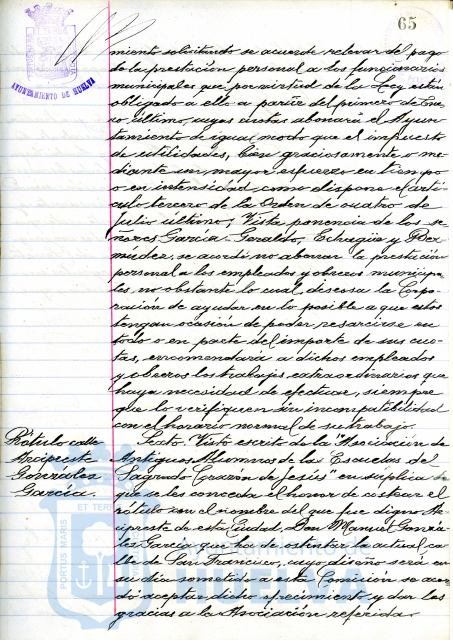 65
AYUNTAMIENTO DE HUELVA
miento solicitando se acuerde relevar del pago
de la prestación personal a los funcionarios
municipales que por virtud de la Ley están
obligado a ello a partir del primero de Ene-
ro último, cuyas cuotas abonará el Ayun-
tamiento de igual modo que el impuesto
de utilidades, bien graciosamente o me-
diante un mayor esfuerzo en tiempo
o en intensidad como dispone el artí-
culo tercero de la Orden de cuatro de
Julio último; Vista ponencia de los se-
ñores García-Geraldo, Echagüe y Ber-
múdez, se acordó no abonar la prestación
personal a los empleados y obreros municipa-
les, no obstante lo cual, deseosa la Corpo-
ración de ayudar en lo posible a que estos
tengan ocasión de poder resarcirse en
todo o en parte del importe de sus cuo-
tas, encomendaría a dichos empleados
y obreros los trabajos extraordinarios que
haya necesidad de efectuar, siempre
que lo verifiquen sin incompatibilidad
con el horario normal de su trabajo.
Rótulo calle
Arcipreste
González
García.
Sexto. Visto escrito de la "Asociación de
Antiguos Alumnos de las Escuelas del
Sagrado Corazón de Jesús" en súplica de
que se les conceda el honor de costear el
rótulo con el nombre del que fue digno Ar-
cipreste de esta Ciudad, Don Manuel Gonzá-
lez García que ha de ostentar la actual ca-
lle de San Francisco, cuyo diseño será en
su día sometido a esta Comisión se acor-
dó aceptar dicho ofrecimiento y dar las
gracias a la Asociación referida.
ET TERR
PORTUS MARIS
Ayuntamiento de
HUELVA